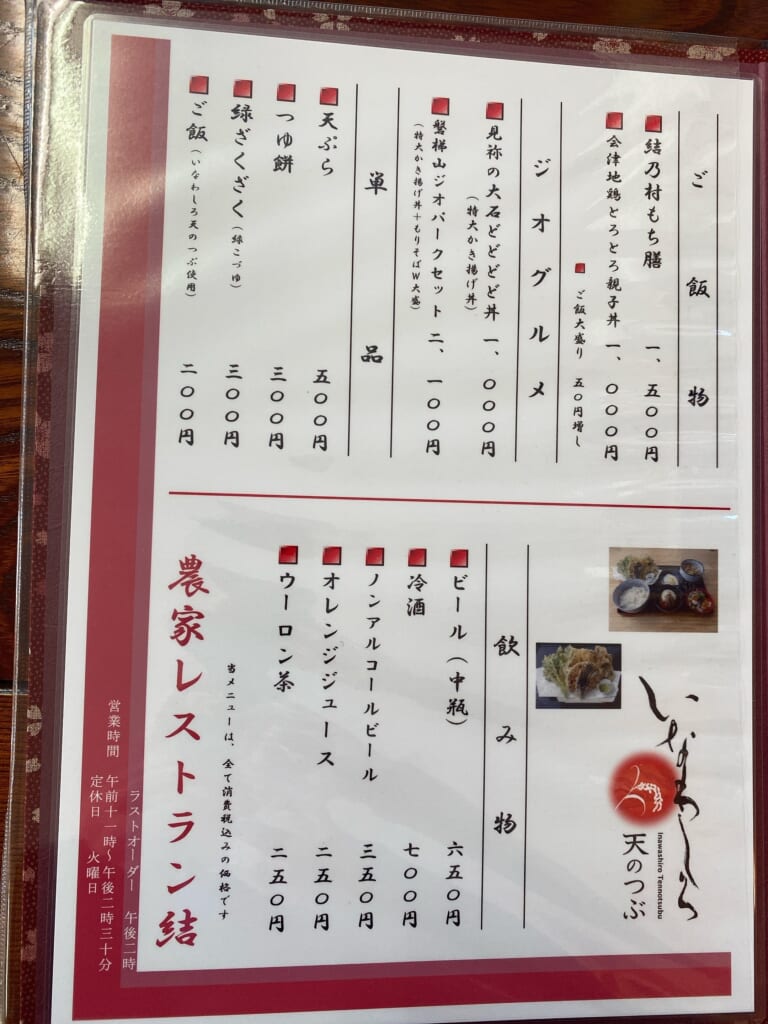 ご飯物
結乃村もち膳 一、五〇〇円
会津地鶏とろとろ親子丼 一、〇〇〇円
ご飯大盛り 五〇円増し
ジオグルメ
見祢の大石どどどど丼 一、〇〇〇円
（特大かき揚げ丼）
磐梯山ジオパークセット 二、一〇〇円
（特大かき揚げ丼＋もりそばW大盛）
単品
天ぷら 五〇〇円
つゆ餅 三〇〇円
緑ざくざく（緑こづゆ） 三〇〇円
ご飯（いなわしろ天のつぶ使用） 二〇〇円
いなわしろ
天のつぶ
Inawashiro Tennotsubu
飲み物
ビール（中瓶） 六五〇円
冷酒 七〇〇円
ノンアルコールビール 三五〇円
オレンジジュース 二五〇円
ウーロン茶 二五〇円
当メニューは、全て消費税込みの価格です
農家レストラン結
ラストオーダー 午後二時
営業時間 午前十一時〜午後二時三十分
定休日 火曜日